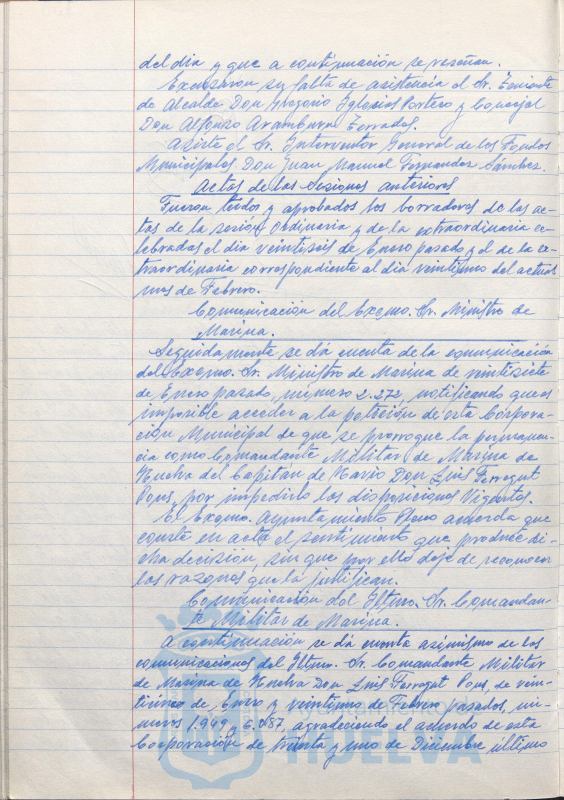 del dia y que a continuación se reseñan.
Excusaron su falta de asistencia el Sr. Teniente
de Alcalde Don Gregorio Iglesias Portero y Concejal
Don Alfonso Aramburu Terrades.
Asiste el Sr. Interventor General de los Fondos
Municipales Don Juan Manuel Fernandez Sánchez.
Actas de las Sesiones anteriores
Fueron leidos y aprobados los borradores de las ac-
tas de la sesión Ordinaria y de la extraordinaria ce-
lebradas el dia veintiseis de Enero pasado y el de la ex-
traordinaria correspondiente al dia veintiuno del actual
mes de Febrero.
Comunicación del Excmo. Sr. Ministro de
Marina.
Seguidamente se dá cuenta de la comunicación
del Excmo. Sr. Ministro de Marina de veintisiete
de Enero pasado, número 2.272, notificando que es
imposible acceder a la petición de esta Corpora-
ción Municipal de que se prorrogue la permanen-
cia como Comandante Militar de Marina de
Huelva del Capitán de Navio Don Luis Ferragut
Pons, por impedirlo las disposiciones Vigentes.
El Excmo. Ayuntamiento Pleno acuerda que
conste en acta el sentimiento que produce di-
cha decisión, sin que por ello deje de reconocer
las razones que la justifican.
Comunicación del Iltmo. Sr. Comandan-
te Militar de Marina.
A continuación se dá cuenta asimismo de las
comunicaciones del Iltmo. Sr. Comandante Militar
de Marina de Huelva Don Luis Ferragut Pons, de vein-
ticinco de Enero y veintiuno de Febrero pasados, nú-
meros 1.949 y 6.087 agradeciendo el acuerdo de esta
Corporación de treinta y uno de Diciembre último
HUELVA